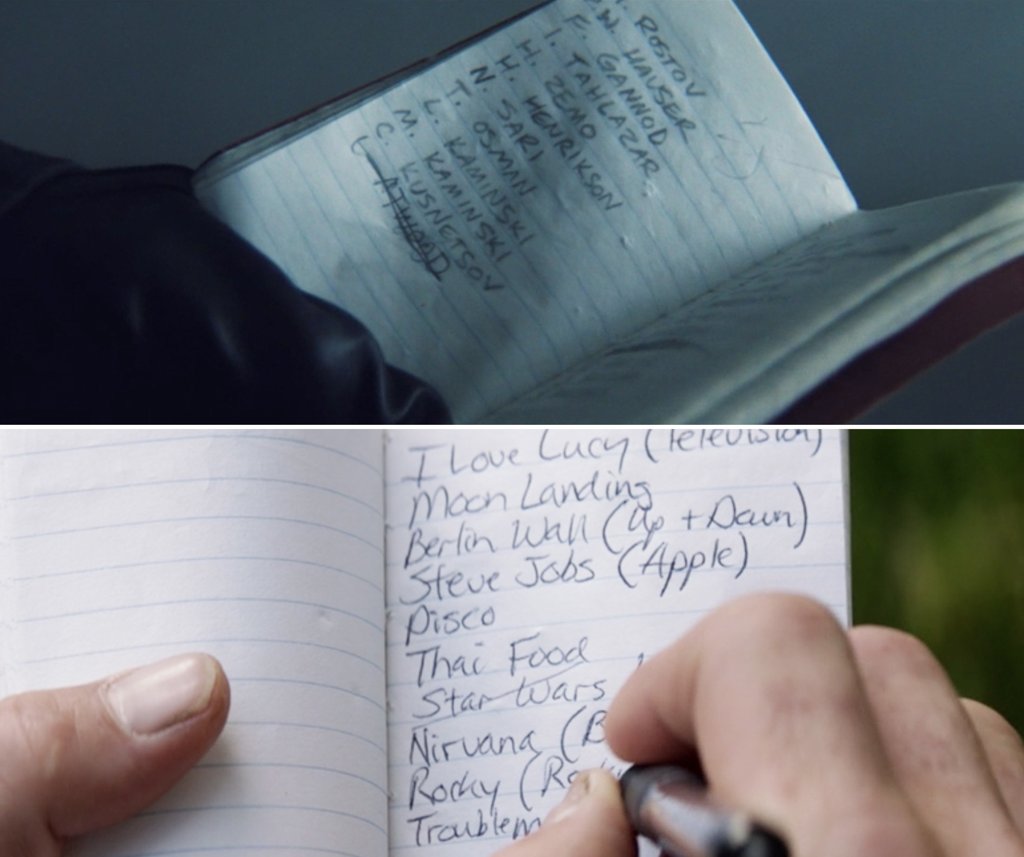 ROSTOV
W. HAUSER
F. GANNOD
I. TAHLAZAR
H. ZEMO
H. HENRIKSON
N. SARI
T. OSMAN
L. KAMINSKI
M. KAMINSKI
C. KUSNETSOV
I Love Lucy (Television)
Moon Landing
Berlin Wall (Up + Down)
Steve Jobs (Apple)
Disco
Thai Food
Star Wars
Nirvana (B
Rocky (Ro
Troublem